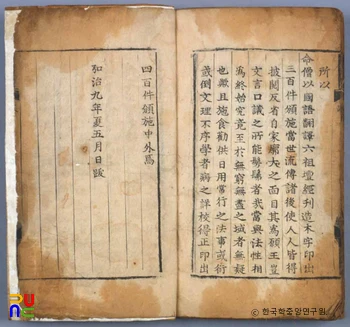 所以
命僧以國語飜譯六祖壇經刊造木字印出
三百件頒施當世流傳諸後使人人皆得
披閱反省自家廓大之面目其爲願王豈
文言口議之所能髣髴者我當與法性相
爲終始究竟至於無窮無盡之域者無疑
也歟且施食勸供日用常行之法事或衍
或倒文理不序學者病之詳校得正印出
四百件頒施中外焉
弘治九年夏五月日跋
© 한국학중앙연구원